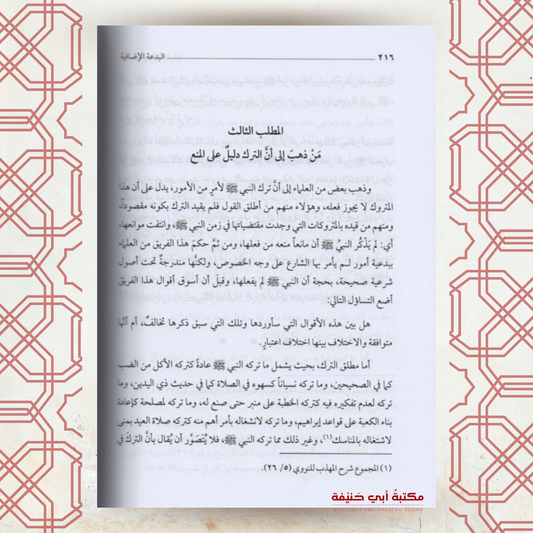 ٢١٦ البدعة الإضافية
المطلب الثالث
مَنْ ذهبَ إلى أنَّ الترك دليلٌ على المنع
وذهب بعض من العلماء إلى أنَّ ترك النبي ﷺ لأمرٍ من الأمور، يدل على أن هذا
المتروك لا يجوز فعله، وهؤلاء منهم من أطلق القول فلم يقيد الترك بكونه مقصوداً،
ومنهم من قيده بالمتروكات التي وجدت مقتضياتها في زمن النبي ﷺ، وانتفت موانعها،
أي: لم يَذْكُر النبيُّ ﷺ أن مانعاً منعه من فعلها، ومن ثَمَّ حكمَ هذا الفريق من العلماء
ببدعية أمور لـم يأمر بها الشارع على وجه الخصوص، ولكنَّها مندرجةٌ تحت أصول
شرعية صحيحة، بحجة أن النبي ﷺ لم يفعلها، وقبلَ أن أسوق أقوال هذا الفريق
أضع التساؤل التالي:
هل بين هذه الأقوال التي سأوردها وتلك التي سبق ذكرها تخالفٌ، أم أنَّها
متوافقة والاختلاف بينها اختلاف اعتبارٍ.
أما مطلق الترك، بحيث يشمل ما تركه النبي ﷺ عادةً كتركه الأكل من الضب
كما في الصحيحين، وما تركه نسياناً كسهوه في الصلاة كما في حديث ذي اليدين، وما
تركه لعدم تفكيره فيه كتركه الخطبة على منبر حتى صنع له، وما تركه لمصلحة كإعادة
بناء الكعبة على قواعد إبراهيم، وما تركه لانشغاله بأمر أهم منه كتركه صلاة العيد بمنى
لانشغاله بالمناسك(١)، وغير ذلك مما تركه النبي ﷺ، فلا يُتَصَوَّر أن يُقال بأنَّ التركَ في
(١) المجموع شرح المهذب للنووي (٥/ ٢٦).
مكتبة أبي حنيفة